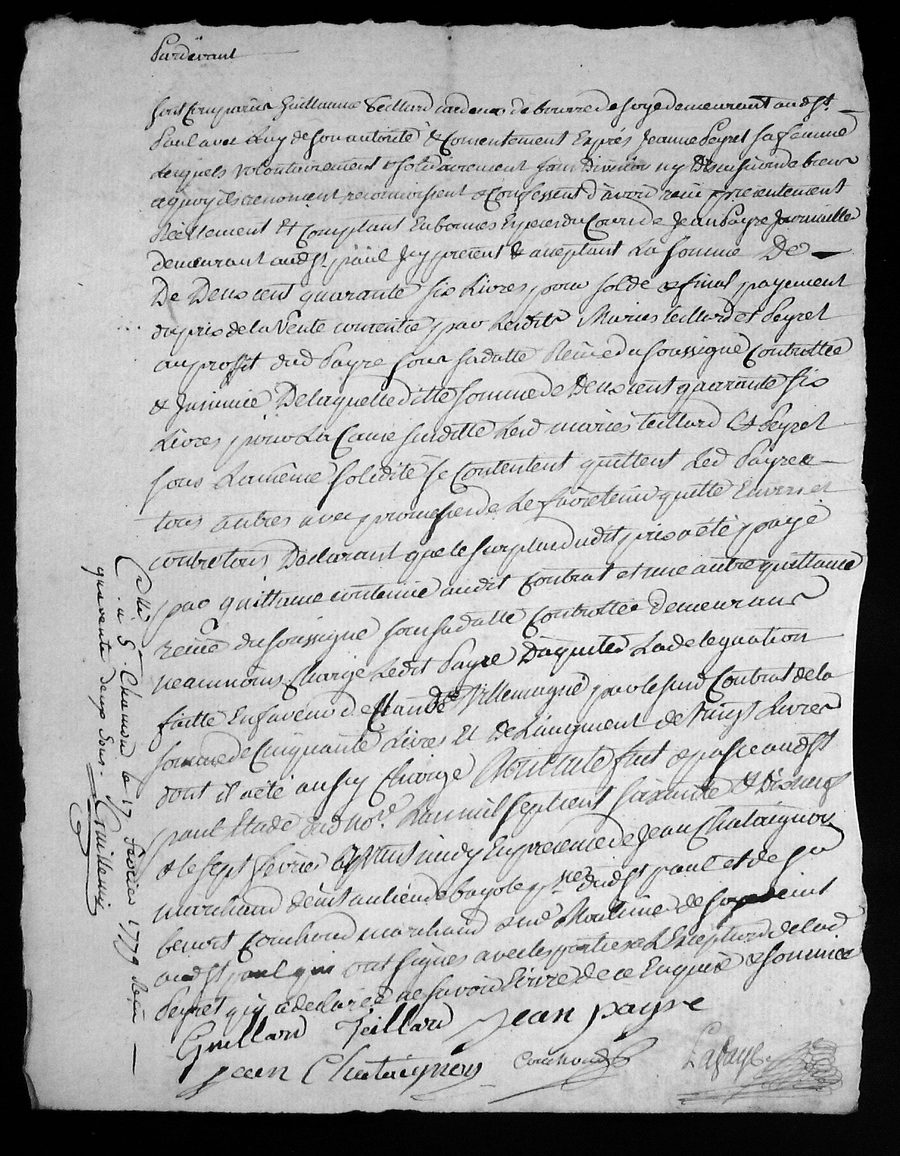 Pardevant
Sont Comparus Guillaume Teillard cardeur de bourre de soye demeurant audt St
Paul avec luy de son autorité & Consentement Exprés Jeanne Peyret sa femme
Lesquels volontairement & solidairement sans Division ny Discussion de biens
aquoy ils renoncent reconnoissent & Confessent d'avoir reçu présentement
Réellement Et Comptant En bonnes Especes du Cours de Jean Payre Journallier
demeurant audt St paul Icy présent & aceptant La somme De
De Deux cent quarante six Livres pour solde & final payement
du prix de la Vente contenüe par Lesdits Mariés teillard et Peyret
au proffit dud Payre sous sa datte Reçue du soussigné Controllée
& Insinuée De laquelle ditte somme de Deux cent quarante six
Livres pour La Cause susditte Lesd mariés teillard Et Peyret
sous La même solidité se Contentent quittent Led Payre &
tous autres avec promesse de Le faire tenir quitte Envers et
contre tous Déclarant que le surplus dudit prix a été payé
par quittance contenüe audit Contrat et une autre quittance
reçüe du soussigné sous sa datte Controllée demeurant
neanmoins Chargé Ledit Payre D'aquiter La delegation
faitte En faveur de Claude Villemagne par le susd Contrat de la
somme de Cinquante Livres Et de L'augment de Vingt Livres
dont il a été aussy Chargé fait & passé audt St
paul Etude dud No.re L'an mil sept cent soixante & Dixneuf
& le sept fevrier avant midy En presence de Jean Chataignon
marchand demeurant au lieu de sse dudt St paul et de Sr
benoit Couchoud marchand & de soye demeurant
audt St paul qui ont signés avec les parties à L'Exception de lad
Peyret qui a déclaré ne savoir Ecrire de ce Enquise & sommée
Guillard Teillard Jean payre
Jean Chataignon Couchoud Lafay
C.llé à St Chamon le 17 fevrier 1779 Reçu
quarente deux sous. Guillemin